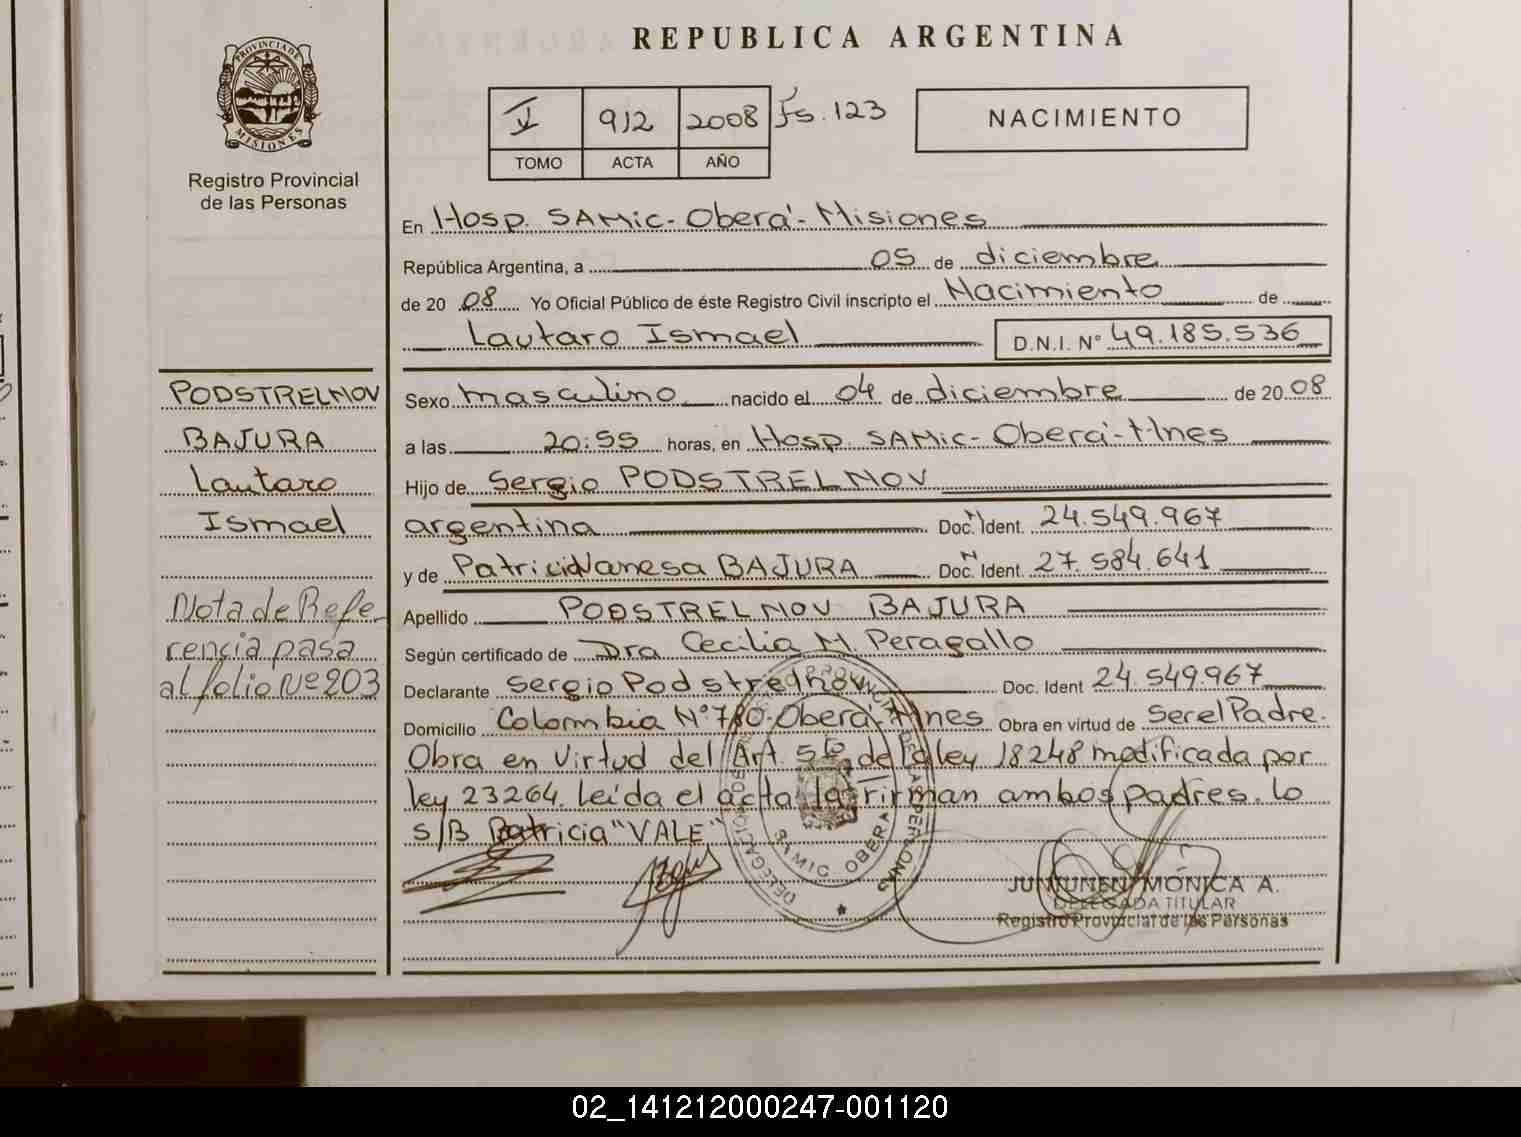 REPUBLICA ARGENTINA
PROVINCIA DE MISIONES
Registro Provincial
de las Personas
V 912 2008 fs. 123
TOMO ACTA AÑO
NACIMIENTO
En Hosp. SAMic - Oberá - Misiones
República Argentina, a 05 de diciembre
de 20 08 Yo Oficial Público de éste Registro Civil inscripto el Nacimiento de
Lautaro Ismael D.N.I. N° 49.185.536
PODSTRELNOV
BAJURA
Lautaro
Ismael
Nota de Refe-
rencia pasa
al folio Nº 203
Sexo masculino nacido el 04 de diciembre de 20 08
a las 20:55 horas, en Hosp. SAMic - Oberá - Mnes
Hijo de Sergio PODSTRELNOV
argentina Doc. N Ident. 24.549.967
y de Patricia Vanesa BAJURA Doc. N Ident. 27.584.641
Apellido PODSTRELNOV BAJURA
Según certificado de Dra Cecilia M. Peragallo
Declarante Sergio Podstrelnov Doc. Ident 24.549.967
Domicilio Colombia N° 780 - Oberá - Mnes Obra en virtud de Ser el Padre.
Obra en Virtud del Art. 5to de la ley 18248 modificada por
ley 23264. Leída el acta la firman ambos padres. Lo
S/B Patricia "VALE"
SAMIC OBERA
JUNTUNEN MONICA A.
DELEGADA TITULAR
Registro Provincial de las Personas
02_141212000247-001120